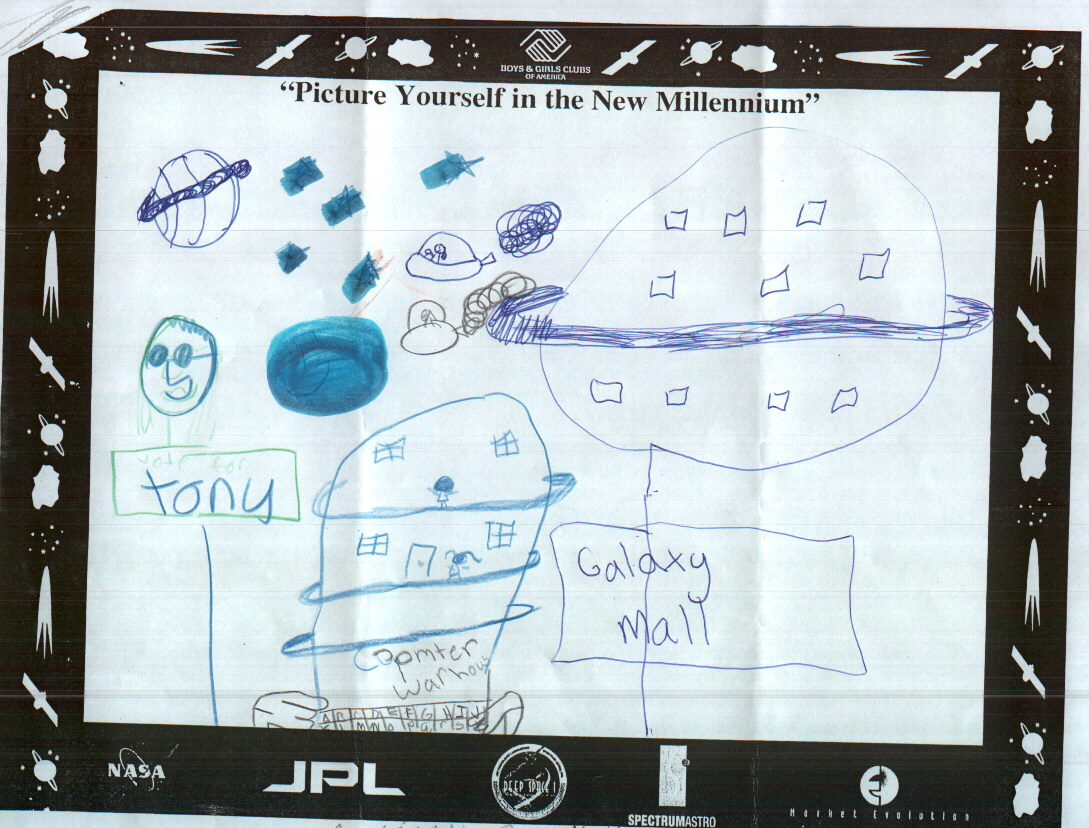 BOYS & GIRLS CLUBS
OF AMERICA
“Picture Yourself in the New Millennium”
vote for
tony
Galaxy
Mall
Copmter
warhous
NASA
JPL
DEEP SPACE 1
SPECTRUMASTRO
Market Evolution